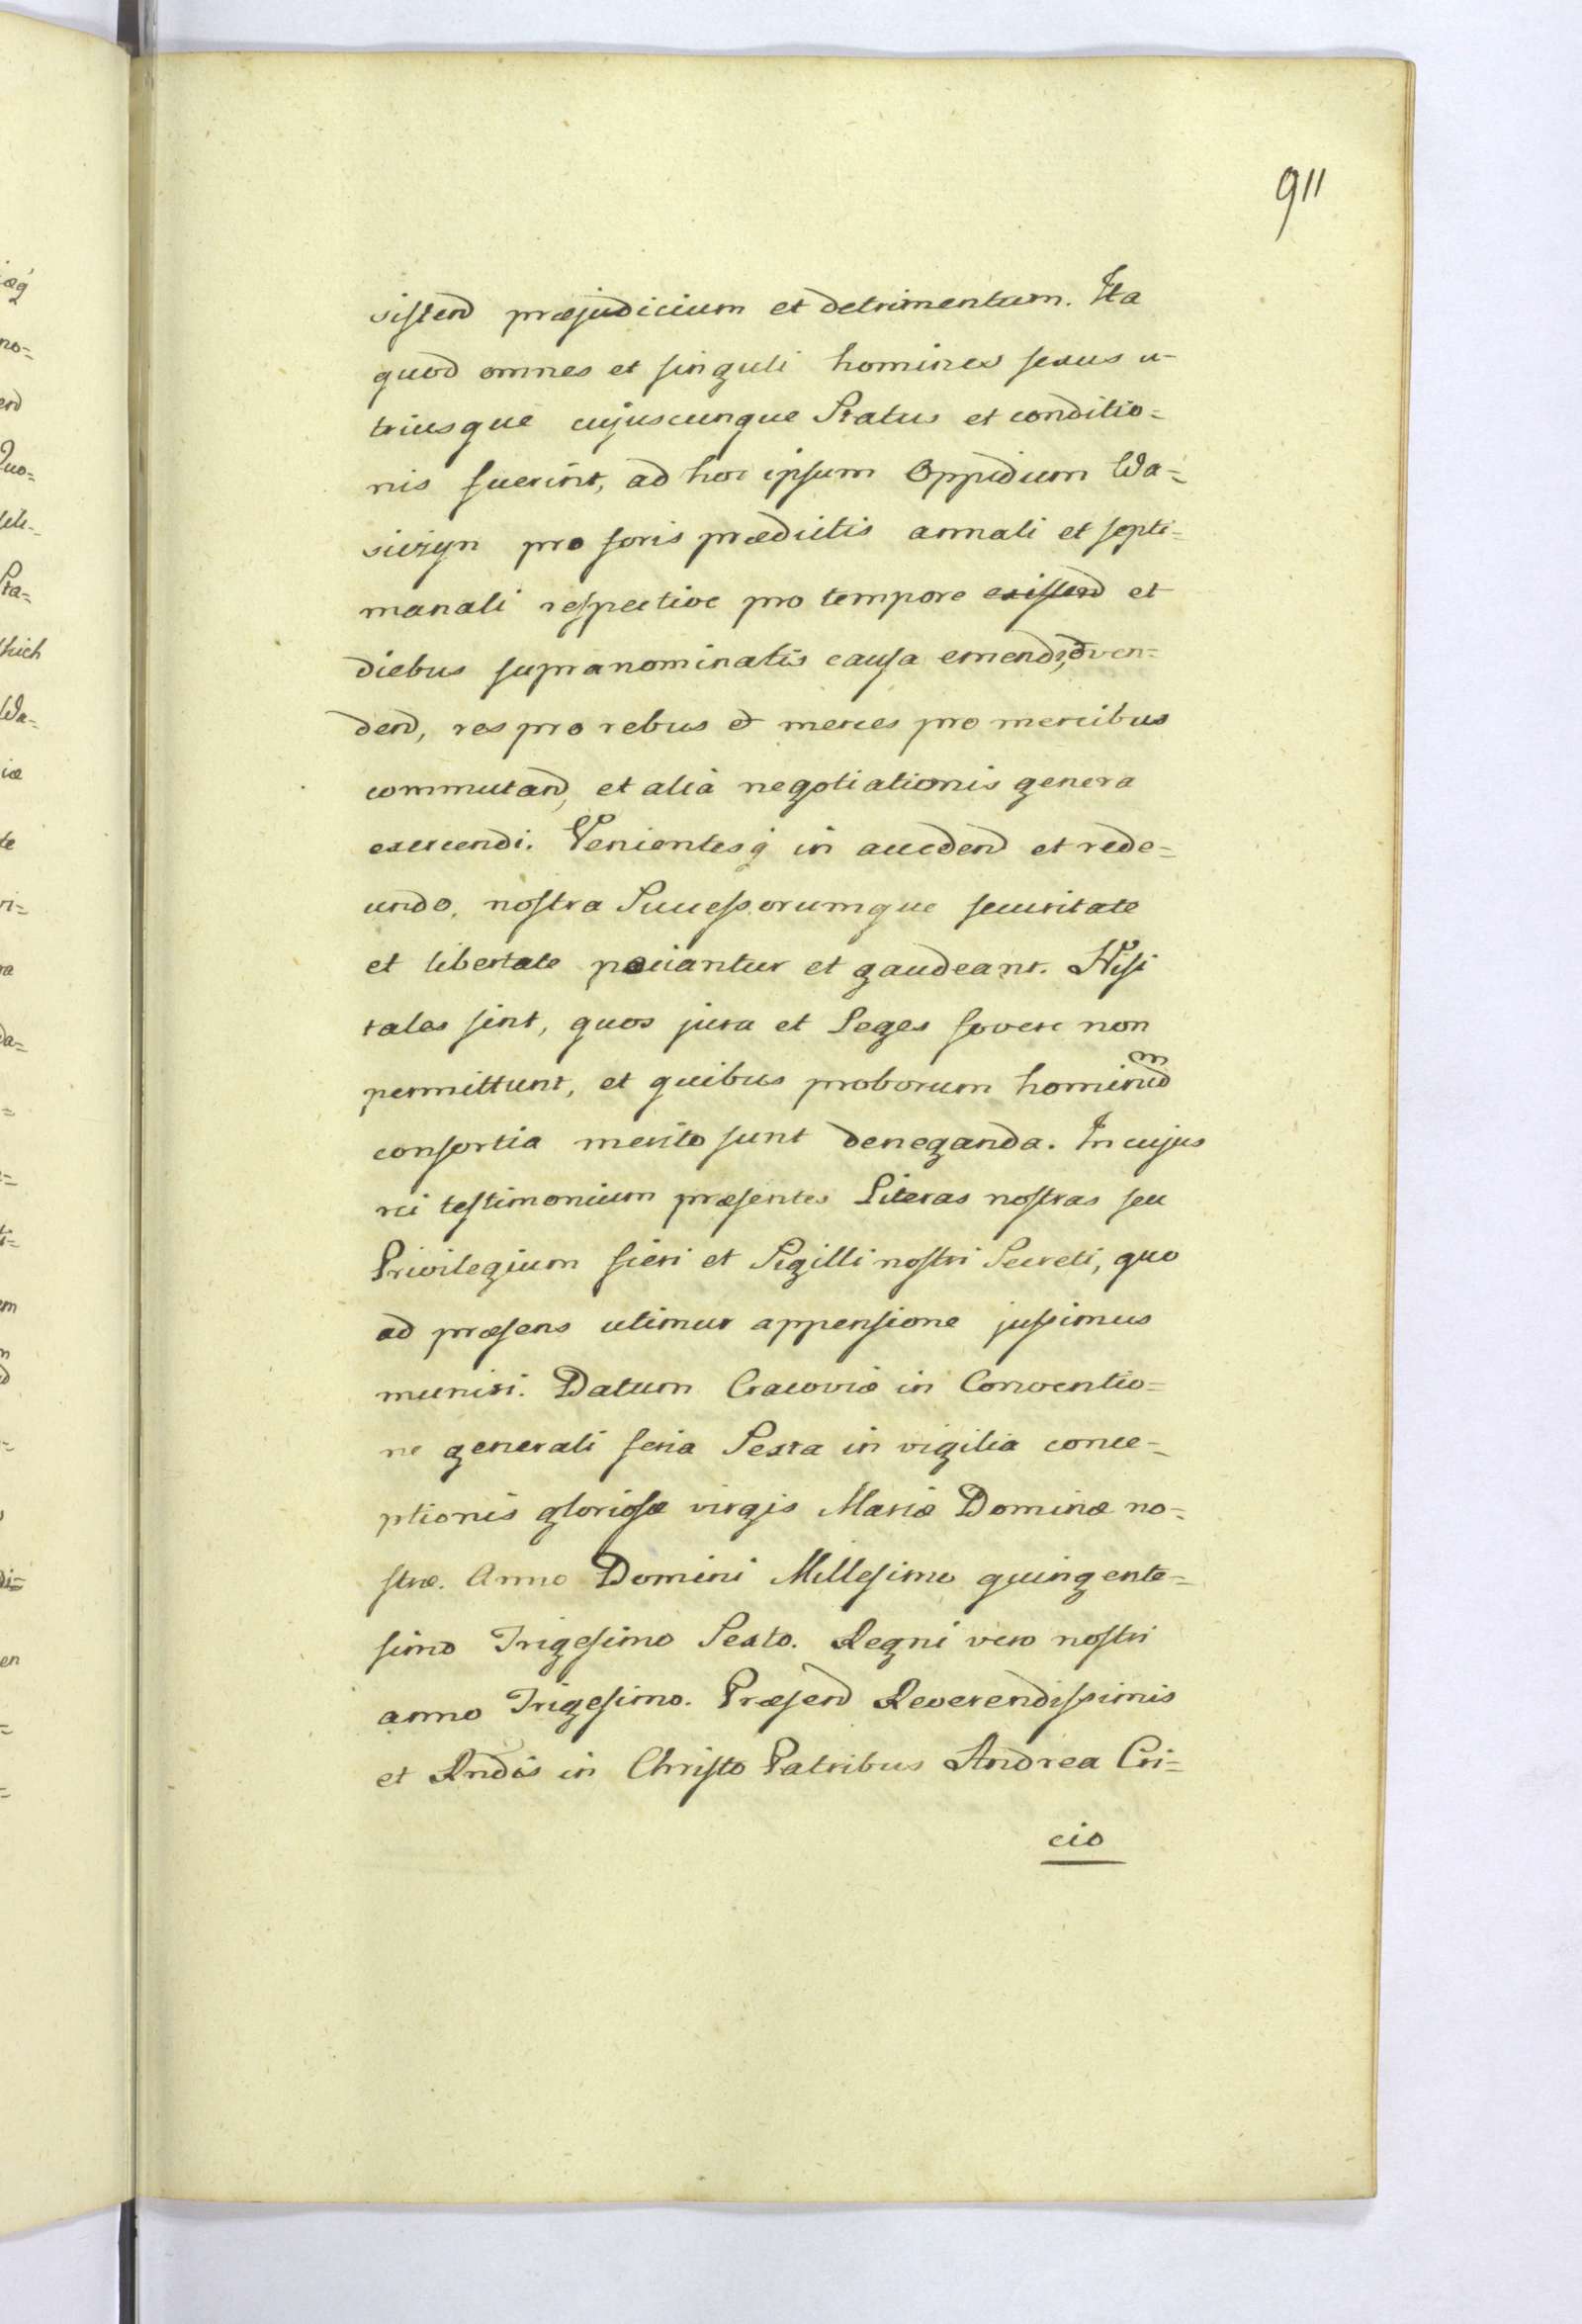 911
sistend præjudicium et detrimentum. Ita
quod omnes et singuli homines sexus u-
triusque cujuscunque Status et conditio=
nis fuerint, ad hoc ipsum Oppidum Wa=
siczyn pro foris prædictis annali et septi=
manali respective pro tempore existend et
diebus supranominatis causa emendi, ven=
dend, res pro rebus & merces pro mercibus
commutand, et alia negotiationis genera
exercendi. Venientesq in accedend et rede=
undo, nostra Successorumque securitate
et libertate pociantur et gaudeant. Nisi
tales sint, quos jura et Leges fovere non
permittunt, et quibus proborum hominum
consortia merito sunt deneganda. In cujus
rei testimonium præsentes Literas nostras seu
Privilegium fieri et Sigilli nostri Secreti, quo
ad præsens utimur appensione jussimus
muniri. Datum Cracoviæ in Conventio=
ne generali feria Sexta in vigilia conce=
ptionis gloriosæ virgis Mariæ Dominæ no=
stræ. Anno Domini Millesimo quingente=
simo Trigesimo Sexto. Regni vero nostri
anno Trigesimo. Præsend Reverendissimis
et Rndis in Christo Patribus Andrea Cri=
cio
æq
no=
end
Quo=
Sta=
Wa=
iæ
te
ri=
ra
da=
=
ti=
em
=
di=
en
=